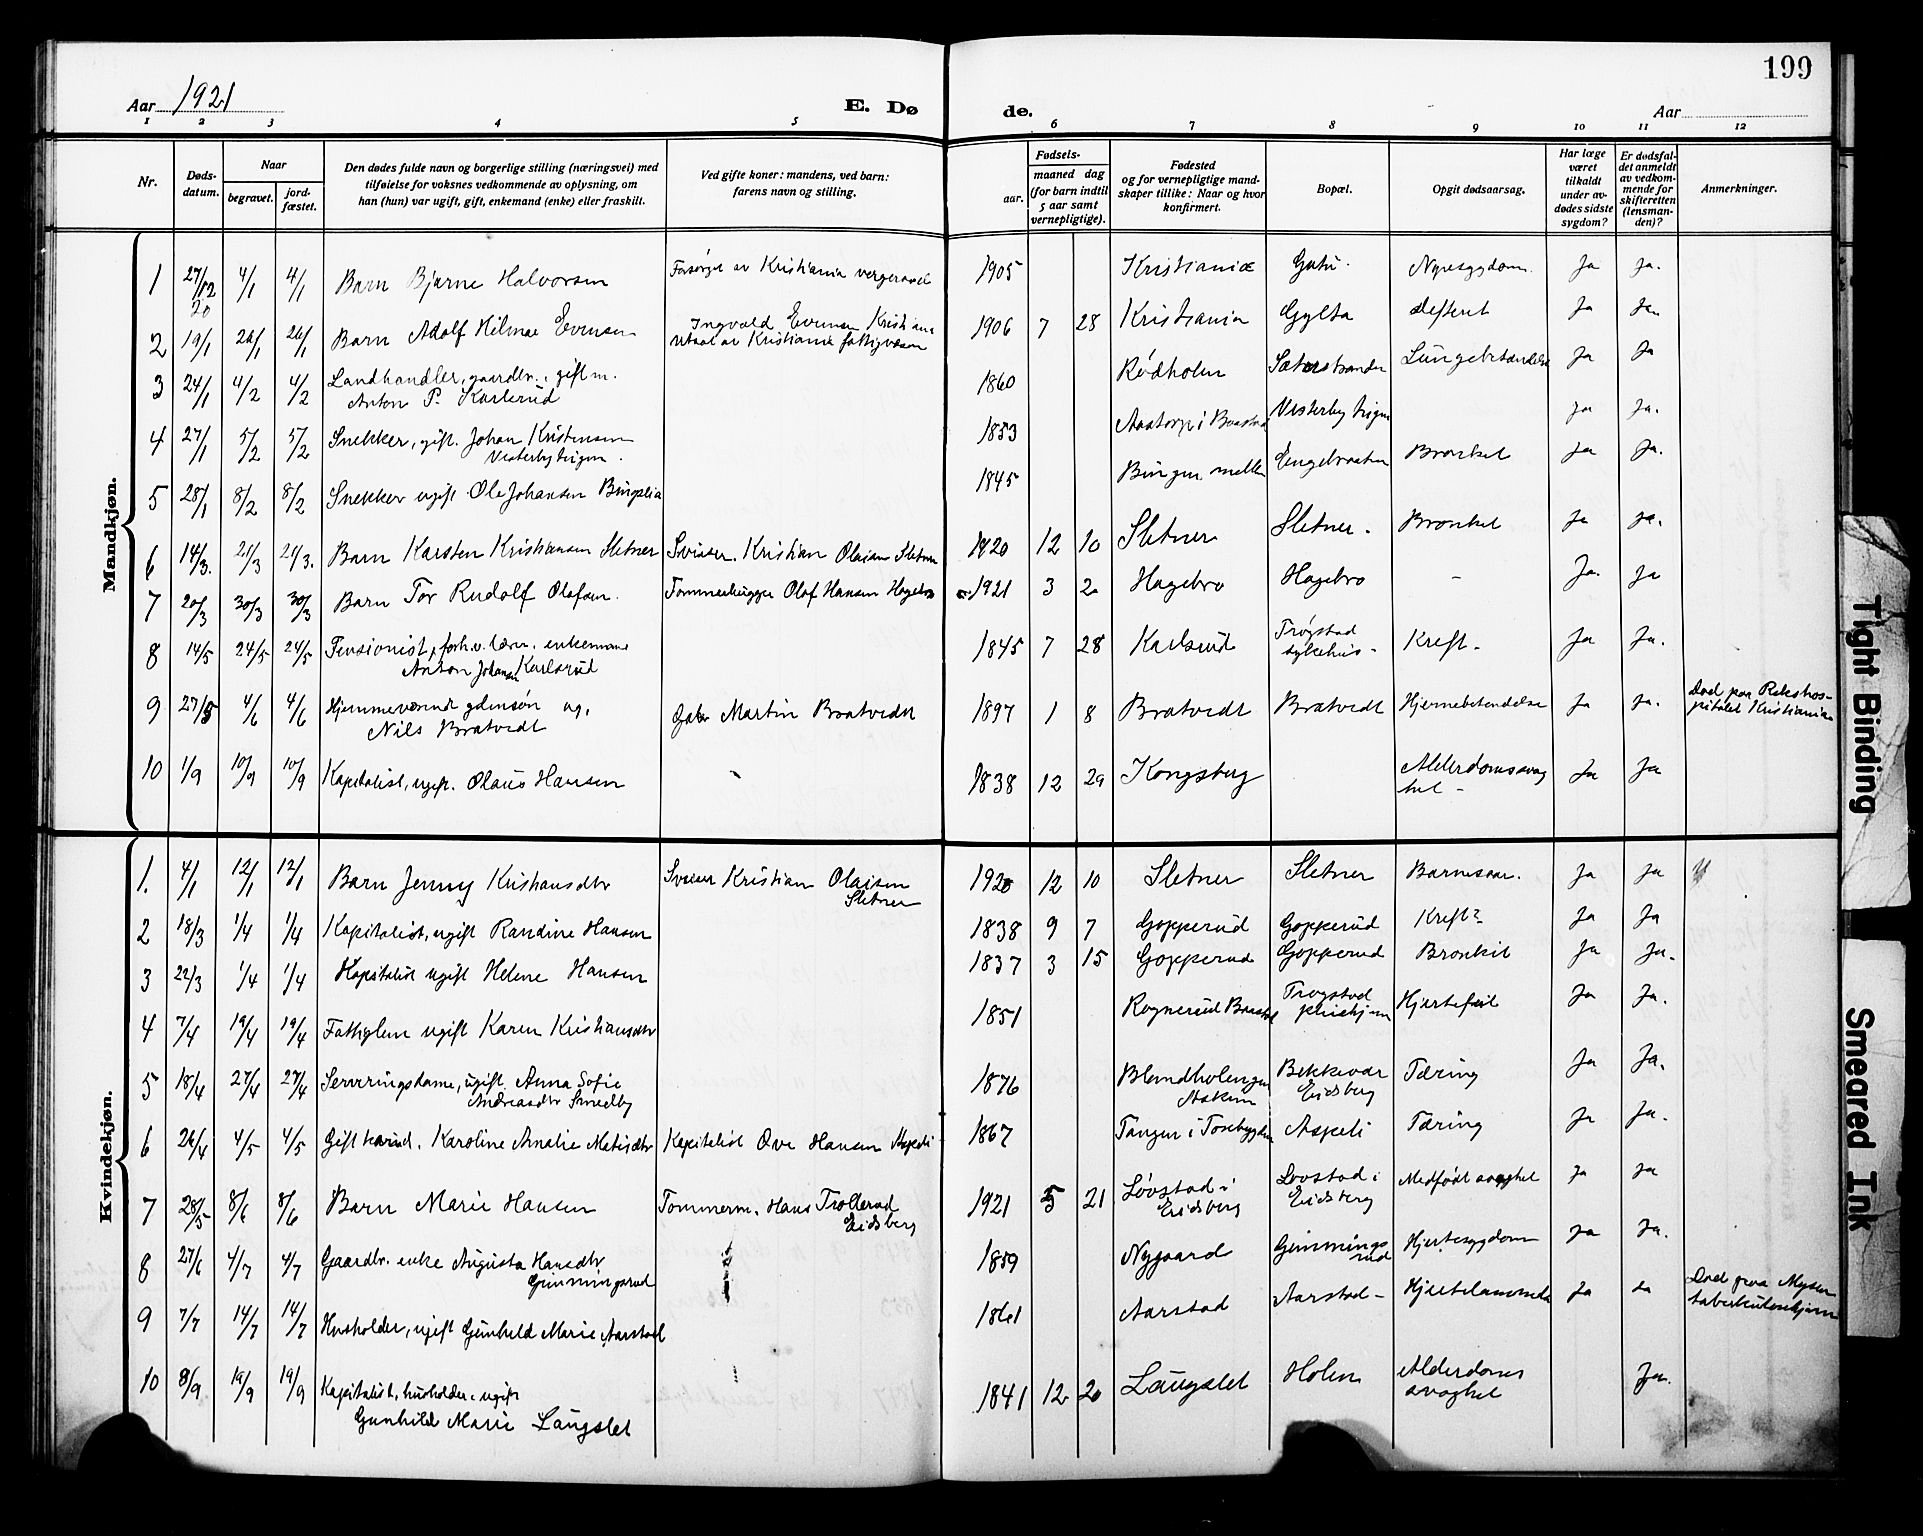 199
Aar 1921
E. Dø
de.
Aar
1 2 3 4 5 6 7 8 9 10 11 12
Nr.
Døds-
datum.
Naar
begravet.
jord-
fæstet.
Den dødes fulde navn og borgerlige stilling (næringsvei) med
tilføielse for voksnes vedkommende av oplysning, om
han (hun) var ugift, gift, enkemand (enke) eller fraskilt.
Ved gifte koner: mandens, ved barn:
farens navn og stilling.
Fødsels-
aar.
maaned dag
(for barn indtil
5 aar samt
vernepligtige).
Fødested
og for vernepligtige mand-
skaper tillike: Naar og hvor
konfirmert.
Bopæl.
Opgit dødsaarsag.
Har læge
været
tilkaldt
under av-
dødes sidste
sygdom?
Er dødsfal-
det anmeldt
av vedkom-
mende for
skifteretten
(lensman-
den)?
Anmerkninger.
Mandkjøn.
1 27/12 20 4/1 4/1 Barn Bjarne Halvorsen Forsørget av Kristiania vergeraad 1905 Kristiania Nyresygdom. Ja Ja.
2 19/1 26/1 26/1 Barn Adolf Hilmar Evensen Ingvald Evensen Kristiania
utsat av Kristiania fattigvæsen 1906 7 28 Kristiania Gylta Ja Ja.
3 24/1 4/2 4/2 Landhandler, gaardbr., gift m.
Anton P. Karlsrud 1860 Rødholen Sæterstranden Lungebetændelse Ja Ja
4 27/1 5/2 5/2 Snekker, gift. Johan Kristensen
Vesterbyteigen. 1853 Vesterbyteigen Ja Ja.
5 28/1 8/2 8/2 Snekker ugift Ole Johansen Bingslia 1845 Engebraaten Bronkit Ja Ja.
6 14/3. 21/3 21/3. Barn Karsten Kristiansen Sletner Sveiser. Kristian Olaisen Sletner 1920 12 10 Sletner Sletner. Bronkit Ja Ja.
7 20/3 30/3 30/3 Barn Tor Rudolf Olafsen. Tømmerhugger Olaf Hansen Hagebro 1921 3 2 Hagebro Hagebro - Ja. Ja
8 14/5 24/5 24/5 Pensionist, forh.v. lærer. enkemand
Anton Johansen Karlsrud 1845 7 28 Karlsrud Trøgstad
sykehus- Kreft- Ja Ja.
9 27/5 4/6 4/6 Hjemmeværende gdmsøn ug.
Nils Bratvedt Gbr Martin Bratvedt 1897 1 8 Bratvedt Bratvedt Hjernebetendelse Ja Ja. Død paa Rikshos-
pitalet Kristiania
10 1/9 10/9 10/9 Kapitalist, ugift. Olaus Hansen 1838 12 29 Kongsberg Alderdomssvag
het- Ja Ja
Kvindekjøn.
1. 4/1 12/1 12/1 Barn Jenny Kristiansdtr Sveiser Kristian Olaisen
Sletner 1920 12 10 Sletner Sletner Barnesaar. Ja Ja
2 18/3 1/4 1/4 Kapitalist, ugift Randine Hansen 1838 9 7 Gopperud Gopperud Kreft? Ja Ja
3 22/3 1/4 1/4 Kapitalist ugift Helene Hansen 1837 3 15 Gopperud Gopperud Bronkit Ja Ja.
4 7/4 19/4 19/4 Fattiglem ugift Karen Kristiansdtr 1851 Rognerud Baastad Trøgstad
pleiehjem Hjertefeil Ja Ja.
5 18/4 27/4 27/4 Serveringsdame, ugift. Anna Sofie
Andreasdtr Smedby 1876 Blundholengen
Askim Bekkevar
Eidsberg Tæring Ja Ja.
6 26/4 4/5 4/5 Gift kvind. Karoline Amalie Matisdtr Kapitalist Ove Hansen Aspeli 1867 Tangen i Tosebygden Aspeli Tæring Ja Ja.
7 28/5 8/6 8/6 Barn Marie Hansen Tømmerm. Hans Trollerud
Eidsberg 1921 5 21 Løvstad i
Eidsberg Løvstad i
Eidsberg Medfødt svaghet Ja Ja
8 27/6 4/7 4/7 Gaardbr. enke Augusta Hansdtr
Gimmingsrud 1859 Nygaard Gimmings
rud Hjertesygdom Ja Ja.
9 7/7 14/7 14/7 Husholder, ugift Gunhild Marie Aarstad 1861 Aarstad Aarstad- Hjertelammelse Ja Ja Død paa Mysen
tuberkulosehjem
10 8/9 19/9 19/9 Kapitalist, husholder, ugift
Gunhild Marie Laugslet 1841 12 20 Laugslet Holen Alderdoms
svaghet Ja.
Tight Binding
Smeared Ink